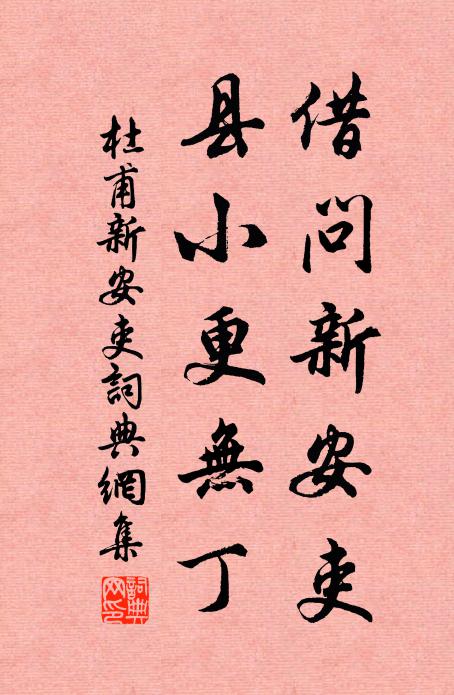 借問新安吏
县小更無丁
杜甫新安吏詞典網集
詞典网印